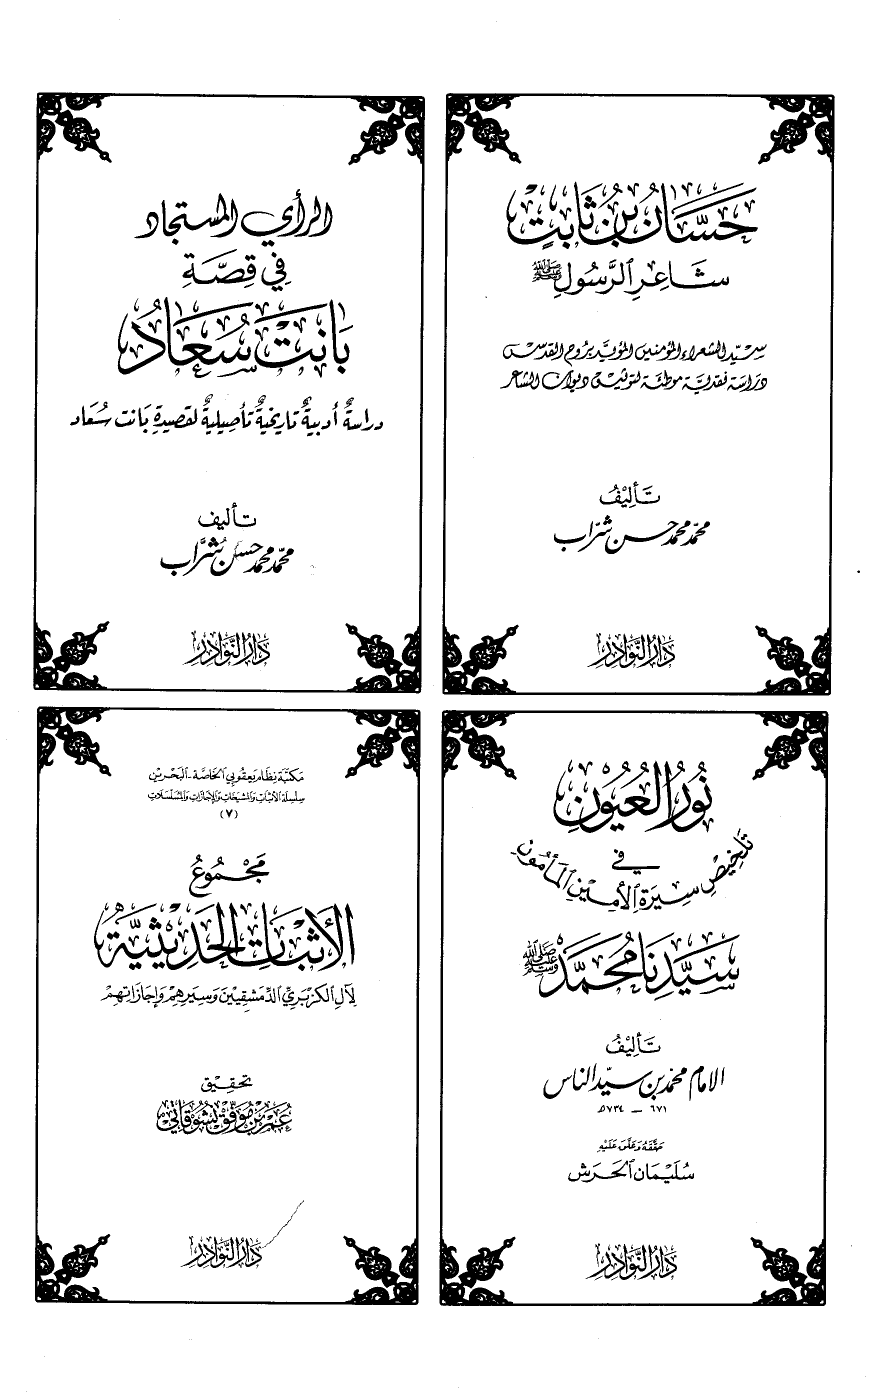 حَسَّان بْن ثَابِت
شَاعِرِ الرَّسُولِ ﷺ
سيّد الشعراء المؤمنين المؤيد بروح القدس
دراسة نقدية موطئة لتوثيق ديوان الشاعر
تَأليْفُ
محمّد محمد حسن شرّاب
دَارُ النَّوادِرِ
الرأي المستجاد
في قِصَّةِ
بَانَتْ سُعَادُ
دراسةٌ أدبيةٌ تاريخيةٌ تأصيليةٌ لقصيدةِ بَانت سُعَاد
تأليف
محمّد محمد حسن شُرَّاب
دَارُ النَّوادِرِ
نُورُ العُيُونِ
في
تلخيصِ سيرة الأمين المأمون
سَيِّدِنَا مُحَمَّدْ ﷺ
تَأليْفُ
الامام محمد بن سيّد الناس
٦٧١ – ٧٣٤ه
حَقَّقَهُ وَعَلَّقَ عَلَيْهِ
سُلَيْمَان الحَرَش
دَارُ النَّوادِرِ
مكتبة نظام يعقوبي الخاصة - البحرين
سلسلة الأثبات والمشيخات والإجازات والمسلسلات
(٧)
مَجْمُوعُ
الأَثْبَاتِ الحَدِيْثِيَّةِ
لِآلِ الكزبَرِيِّ الدِّمَشْقِيِّينَ وَسِيَرِهِمْ وَإجَازَاتِهِمْ
تحقيق
عُمَر بن مُوَفَّق النُّشُوقَاتِي
دَارُ النَّوادِرِ